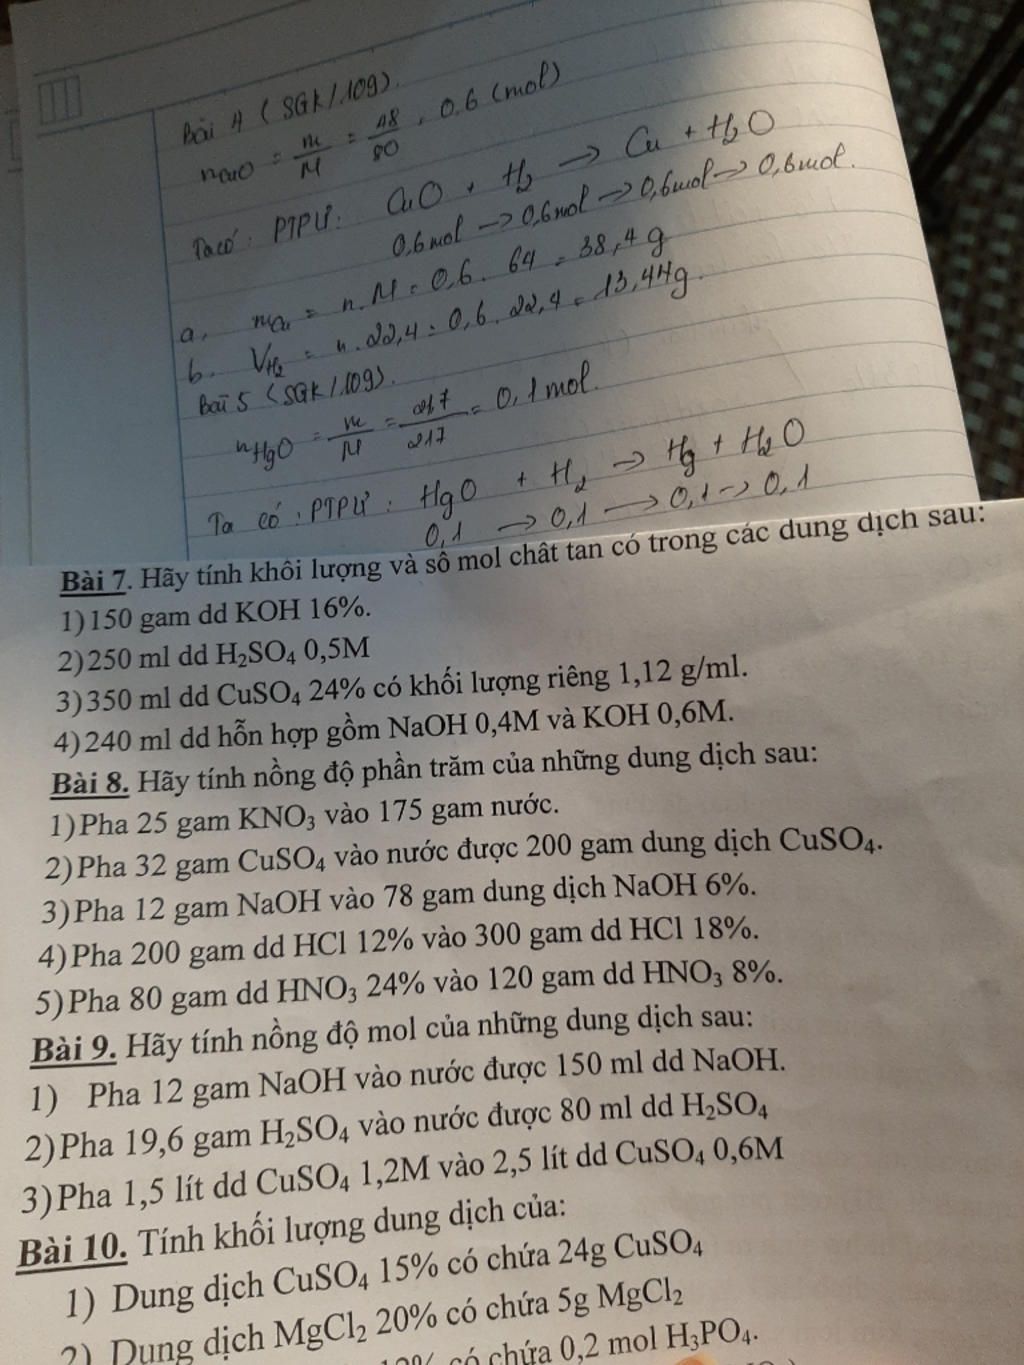 Bài 4 (SGK/109).
nCuO = m/M = 48/80 = 0.6 (mol)
Ta có: PTPƯ: CuO + H₂ → Cu + H₂O
0,6mol → 0,6mol → 0,6mol → 0,6mol.
a. mCu = n.M = 0,6. 64 = 38,4g
b. VH₂ = n.22,4 = 0,6.22,4 = 13,44g.
Bài 5 (SGK/109).
nHgO = m/M = 21,7/217 = 0,1mol.
Ta có: PTPƯ: HgO + H₂ → Hg + H₂O
0,1 → 0,1 → 0,1 → 0,1
Bài 7. Hãy tính khối lượng và số mol chất tan có trong các dung dịch sau:
1)150 gam dd KOH 16%.
2)250 ml dd H₂SO₄ 0,5M
3)350 ml dd CuSO₄ 24% có khối lượng riêng 1,12 g/ml.
4)240 ml dd hỗn hợp gồm NaOH 0,4M và KOH 0,6M.
Bài 8. Hãy tính nồng độ phần trăm của những dung dịch sau:
1)Pha 25 gam KNO₃ vào 175 gam nước.
2)Pha 32 gam CuSO₄ vào nước được 200 gam dung dịch CuSO₄.
3)Pha 12 gam NaOH vào 78 gam dung dịch NaOH 6%.
4)Pha 200 gam dd HCl 12% vào 300 gam dd HCl 18%.
5)Pha 80 gam dd HNO₃ 24% vào 120 gam dd HNO₃ 8%.
Bài 9. Hãy tính nồng độ mol của những dung dịch sau:
1) Pha 12 gam NaOH vào nước được 150 ml dd NaOH.
2)Pha 19,6 gam H₂SO₄ vào nước được 80 ml dd H₂SO₄
3)Pha 1,5 lít dd CuSO₄ 1,2M vào 2,5 lít dd CuSO₄ 0,6M
Bài 10. Tính khối lượng dung dịch của:
1) Dung dịch CuSO₄ 15% có chứa 24g CuSO₄
2) Dung dịch MgCl₂ 20% có chứa 5g MgCl₂
có chứa 0,2 mol H₃PO₄.